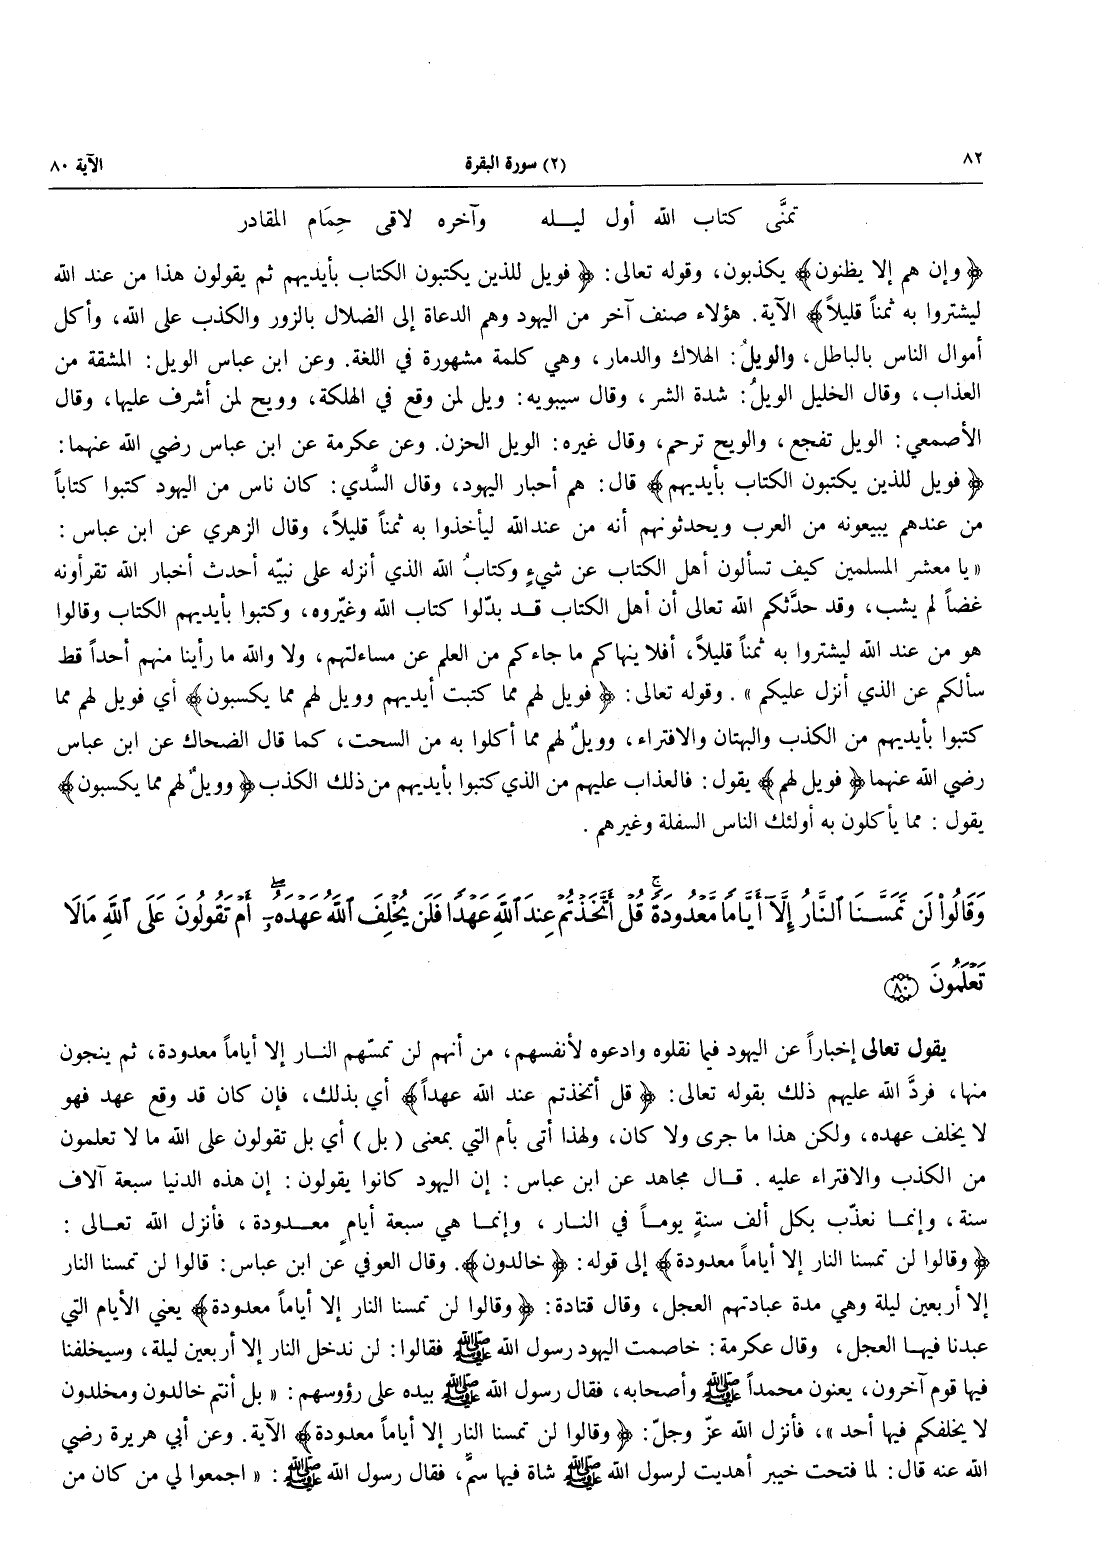 ٨٢ (٢) سورة البقرة الآية ٨٠
تمنَّى كتاب الله أول ليـله وآخره لاقى حِمَام المقادر
﴿ وإن هم إلا يظنون﴾ يكذبون، وقوله تعالى: ﴿ فويل للذين يكتبون الكتاب بأيديهم ثم يقولون هذا من عند الله
ليشتروا به ثمناً قليلاً﴾ الآية. هؤلاء صنف آخر من اليهود وهم الدعاة إلى الضلال بالزور والكذب على الله، وأكل
أموال الناس بالباطل، والويلُ: الهلاك والدمار، وهي كلمة مشهورة في اللغة. وعن ابن عباس الويل: المشقة من
العذاب، وقال الخليل الويلُ: شدة الشر، وقال سيبويه: ويل لمن وقع في الهلكة، وويح لمن أشرف عليها، وقال
الأصمعي: الويل تفجع، والويح ترحم، وقال غيره: الويل الحزن. وعن عكرمة عن ابن عباس رضي الله عنهما:
﴿ فويل للذين يكتبون الكتاب بأيديهم﴾ قال: هم أحبار اليهود، وقال السُّدي: كان ناس من اليهود كتبوا كتاباً
من عندهم يبيعونه من العرب ويحدثونهم أنه من عندالله ليأخذوا به ثمناً قليلاً، وقال الزهري عن ابن عباس:
«يا معشر المسلمين كيف تسألون أهل الكتاب عن شيءٍ وكتابُ الله الذي أنزله على نبيّه أحدث أخبار الله تقرأونه
غضاً لم يشب، وقد حدَّثكم الله تعالى أن أهل الكتاب قـد بدّلوا كتاب الله وغيّروه، وكتبوا بأيديهم الكتاب وقالوا
هو من عند الله ليشتروا به ثمناً قليلاً، أفلا ينهاكم ما جاءكم من العلم عن مساءلتهم، ولا والله ما رأينا منهم أحداً قط
سألكم عن الذي أنزل عليكم» . وقوله تعالى: ﴿ فويل لهم مما كتبت أيديهم وويل لهم مما يكسبون﴾ أي فويل لهم مما
كتبوا بأيديهم من الكذب والبهتان والافتراء، وويلٌ لهم مما أكلوا به من السحت، كما قال الضحاك عن ابن عباس
رضي الله عنهما﴿ فويل لهم﴾ يقول: فالعذاب عليهم من الذي كتبوا بأيديهم من ذلك الكذب﴿ وويلٌ لهم مما يكسبون﴾
يقول : مما يأكلون به أولئك الناس السفلة وغيرهم .
وَقَالُوا۟ لَن تَمَسَّنَا ٱلنَّارُ إِلَّآ أَيَّامًا مَّعْدُودَةً ۚ قُلْ أَتَّخَذْتُمْ عِندَ ٱللَّهِ عَهْدًا فَلَن يُخْلِفَ ٱللَّهُ عَهْدَهُۥٓ ۖ أَمْ تَقُولُونَ عَلَى ٱللَّهِ مَا لَا
تَعْلَمُونَ ﴿٨٠﴾
يقول تعالى إخباراً عن اليهود فيما نقلوه وادعوه لأنفسهم، من أنهم لن تمسّهم النـار إلا أياماً معدودة، ثم ينجون
منها، فردَّ الله عليهم ذلك بقوله تعالى: ﴿ قل أتخذتم عند الله عهداً﴾ أي بذلك، فإن كان قد وقع عهد فهو
لا يخلف عهده، ولكن هذا ما جرى ولا كان، ولهذا أتى بأم التي بمعنى ( بل ) أي بل تقولون على الله ما لا تعلمون
من الكذب والافتراء عليه . قـال مجاهد عن ابن عباس : إن اليهود كانوا يقولون : إن هذه الدنيا سبعة آلاف
سنة ، وإنمـا نعذّب بكل ألف سنةٍ يومـاً في النـار ، وإنمـا هي سبعة أيامٍ معـدودة ، فأنزل الله تعـالى :
﴿ وقالوا لن تمسنا النار إلا أياماً معدودة﴾ إلى قوله: ﴿ خالدون﴾. وقال العوفي عن ابن عباس: قالوا لن تمسنا النار
إلا أربعين ليلة وهي مدة عبادتهم العجل، وقال قتادة: ﴿ وقالوا لن تمسنا النار إلا أياماً معدودة﴾ يعني الأيام التي
عبدنا فيهـا العجل، وقال عكرمة: خاصمت اليهود رسول الله ﷺ فقالوا: لن ندخل النار إلا أربعين ليلة، وسيخلفنا
فيها قوم آخرون، يعنون محمداً ﷺ وأصحابه، فقال رسول الله ﷺ بيده على رؤوسهم: « بل أنتم خالدون ومخلدون
لا يخلفكم فيها أحد »، فأنزل الله عزّ وجلّ: ﴿ وقالوا لن تمسنا النار إلا أياماً معدودة﴾ الآية. وعن أبي هريرة رضي
الله عنه قال: لما فتحت خيبر أهديت لرسول الله ﷺ شاة فيها سمٌّ، فقال رسول الله ﷺ: « اجمعوا لي من كان من